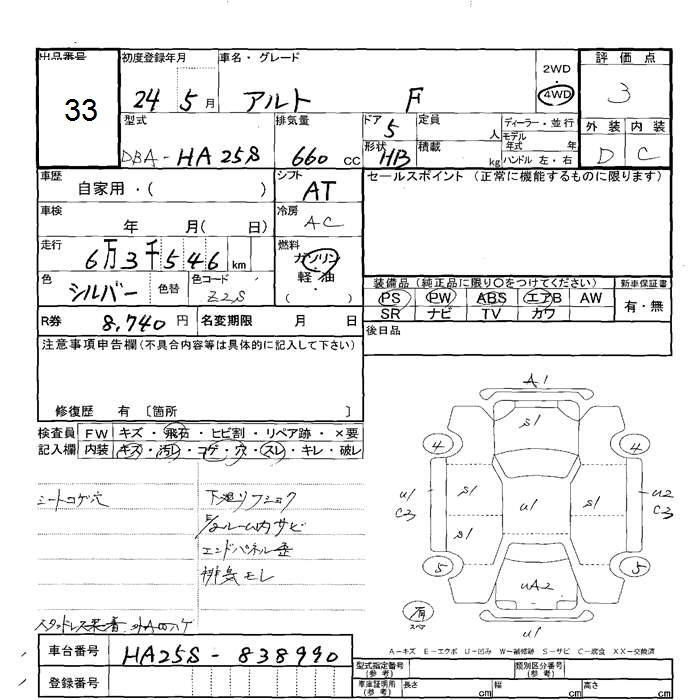 出品番号 初度登録年月 車名・グレード 2WD 評価点
33 24 5月 アルト F 4WD 3
型式 排気量 ドア 5 定員 人 ディーラー・並行 外装 内装
DBA-HA25S 660 CC 形状 HB 積載 kg モデル年式 年 ハンドル 左・右 D C
車歴 自家用・( ) シフト AT セールスポイント(正常に機能するものに限ります)
車検 年 月( 日) 冷房 AC
走行 6万3千546 km 燃料 ガソリン 軽油 ( )
色 シルバー 色替 色コード Z2S 装備品(純正品に限り〇をつけてください) 新車保証書
PS PW ABS エアB AW 有・無
SR ナビ TV カワ
R券 8,740 円 名変期限 月 日 後日品
注意事項申告欄(不具合内容等は具体的に記入して下さい)
修復歴 有 〔箇所 〕
検査員 FW キズ・飛石・ヒビ割・リペア跡・×要
記入欄 内装 キズ・汚レ・コゲ・穴・スレ・キレ・破レ
シートコゲ穴 下廻リフショク
ルーム内サビ
エンドパネル歪
排気モレ
A1
S1
4 4
U1 C3 S1 U1 S1 U2 C3
S1
5 5
UA2
有 スペア U1
A-キズ E-エクボ U-凹み W-補修跡 S-サビ C-腐食 XX-交換済
車台番号 HA25S-838990 型式指定番号(参考) 類別区分番号(参考)
登録番号 車庫証明用(参考) 長さ cm 幅 cm 高さ cm